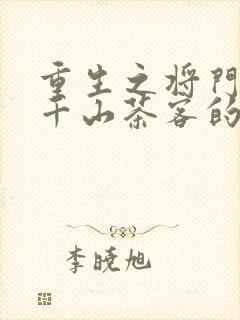 重生之将门
千山茶客的
李晓旭